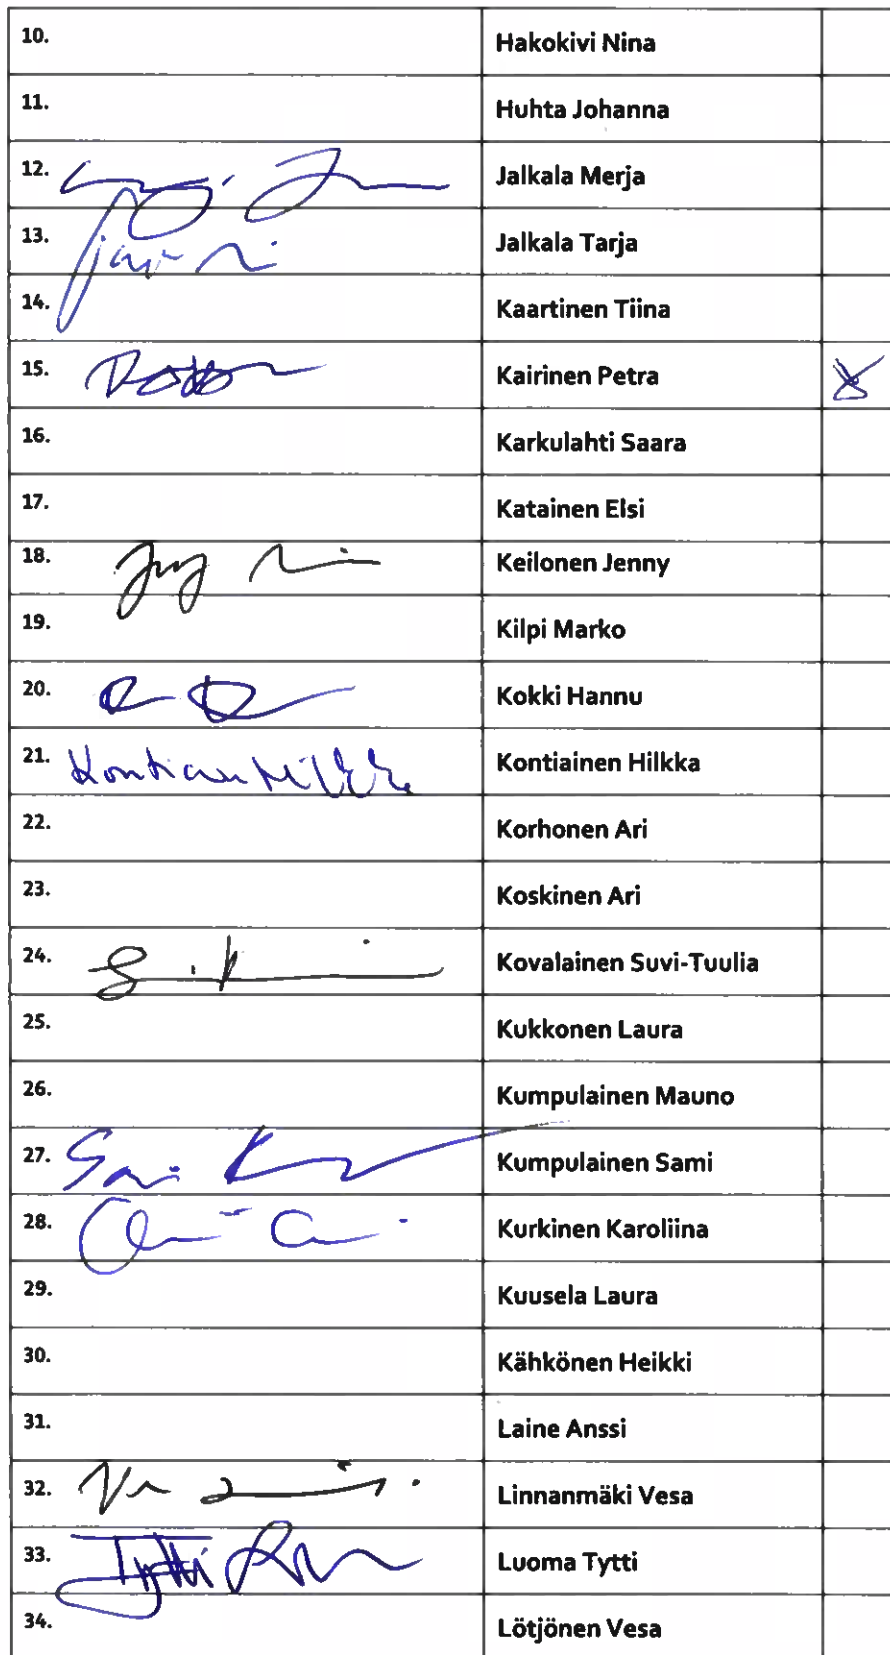 10. Hakokivi Nina
11. Huhta Johanna
12. Jalkala Merja
13. Jalkala Tarja
14. Kaartinen Tiina
15. Kairinen Petra
16. Karkulahti Saara
17. Katainen Elsi
18. Keilonen Jenny
19. Kilpi Marko
20. Kokki Hannu
21. Kontiainen Hilkka Kontiainen Hilkka
22. Korhonen Ari
23. Koskinen Ari
24. Kovalainen Suvi-Tuulia
25. Kukkonen Laura
26. Kumpulainen Mauno
27. Kumpulainen Sami
28. Kurkinen Karoliina
29. Kuusela Laura
30. Kähkönen Heikki
31. Laine Anssi
32. Linnanmäki Vesa
33. Tytti Luoma Tytti
34. Lötjönen Vesa